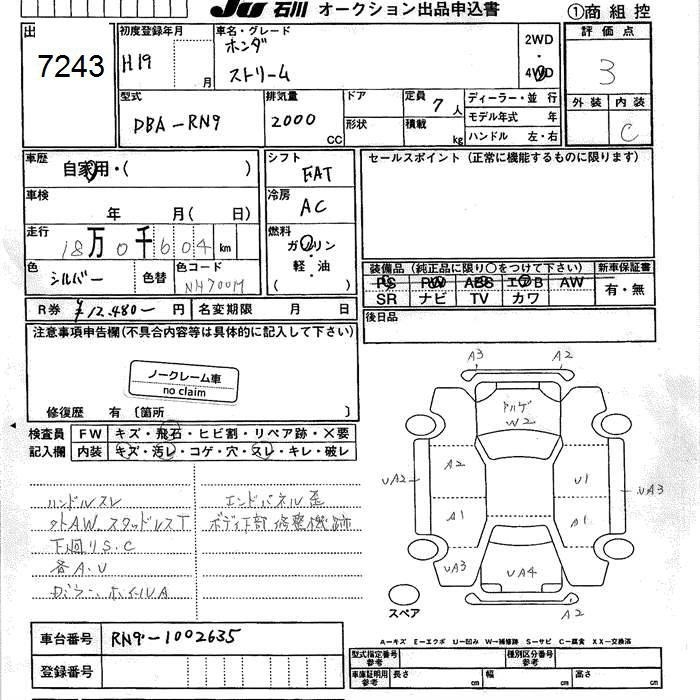 JU 石川 オークション出品申込書 ①商組控
出
7243
初度登録年月
H19
月
車名・グレード
ホンダ
ストリーム
2WD
・
4WD
評価点
3
型式
DBA-RN9
排気量
2000
CC
ドア
形状
定員
7人
積載
kg
ディーラー・並行
モデル年式 年
ハンドル 左・右
外装 内装
C
車歴
自家用・( )
車検
年 月( 日)
走行
18万0千604 km
色
シルバー
色替
色コード
NH700M
シフト
FAT
冷房
AC
燃料
ガソリン
・
軽・油
( )
セールスポイント(正常に機能するものに限ります)
装備品(純正品に限り○をつけて下さい) 新車保証書
PS PW ABS エアB AW
SR ナビ TV カワ
有・無
後日品
R券 ¥12,480- 円 名変期限 月 日
注意事項申告欄(不具合内容等は具体的に記入して下さい)
ノークレーム車
no claim
修復歴 有 〔箇所 〕
検査員 FW キズ・飛石・ヒビ割・リペア跡・×要
記入欄 内装 キズ・汚レ・コゲ・穴・スレ・キレ・破レ
ハンドルスレ
エンドパネル歪
外AW スタッドレスT
ボディ下部修整機跡
下廻りS.C
各A.U
ホイルA
A3 A2
W2
A2
UA2
U1
UA3
A1
A1
UA3
UA4
A2
スペア
A-キズ E-エクボ U-凹み W-補修跡 S-サビ C-腐食 XX-交換済
車台番号 RN9-1002635
登録番号
型式指定番号
参考
種別区分番号
参考
車庫証明用
参考
長さ cm 幅 cm 高さ cm